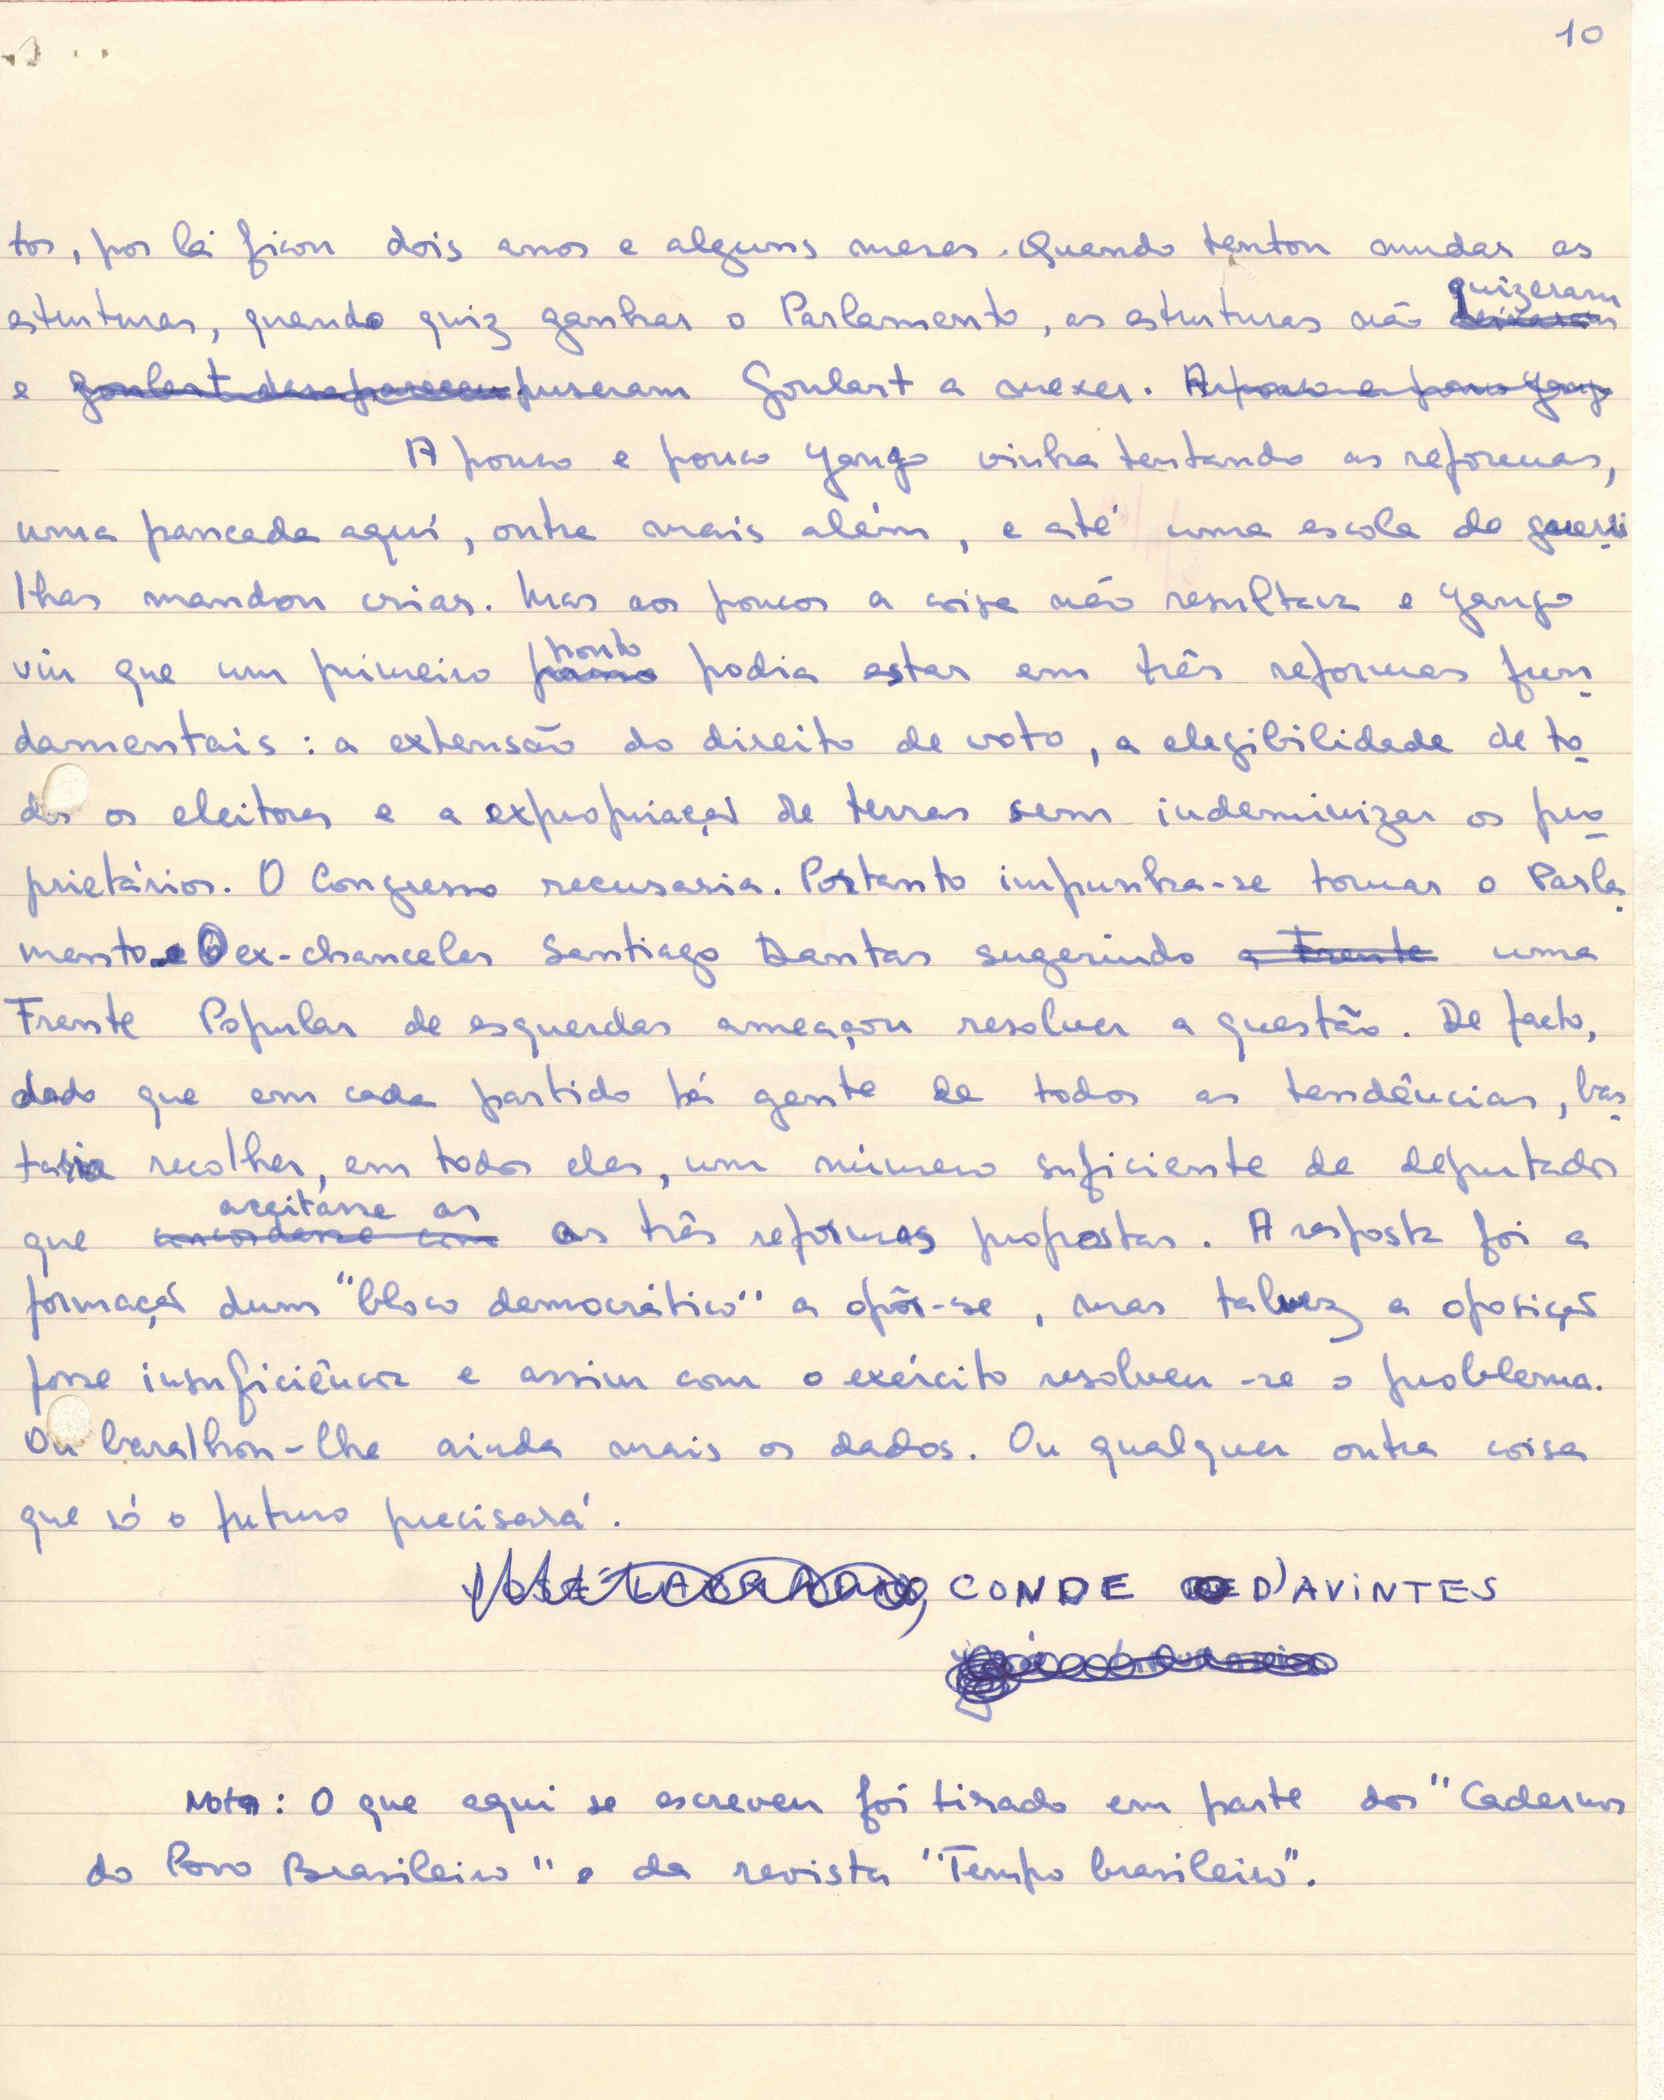 10
tos, por lá ficou dois anos e alguns meses. Quando tentou mudar as
quizeram
estruturas, quando quiz ganhar o Parlamento, as estruturas não
e Goulart desapareceu puseram Goulart a mexer. A pouco e pouco Yango
A pouco e pouco Yango vinha tentando as reformas,
uma pancada aqui, outra mais além, e até uma escola de guerri
lhas mandou criar. Mas aos poucos a coisa não resultava e Yango
ponto
viu que um primeiro passo podia estar em três reformas fun-
damentais: a extensão do direito de voto, a elegibilidade de to-
dos os eleitores e a expropriação de terras sem indeminizar os pro-
prietários. O Congresso recusaria. Portanto impunha-se tomar o Parla-
mento. O ex-chanceler Santiago Dantas sugerindo a Frente uma
Frente Popular de esquerdas ameaçou resolver a questão. De facto,
dado que em cada partido há gente de todos as tendências, bas-
taria recolher, em todos eles, um número suficiente de deputados
aceitasse as
que concordasse com as três reformas propostas. A resposta foi a
formação dum "bloco democrático" a opôr-se, mas talvez a oposição
fosse insuficiência e assim com o exército resolveu-se o problema.
Ou baralhou-lhe ainda mais os dados. Ou qualquer outra coisa
que só o futuro precisará.
CONDE D'AVINTES
Nota: O que aqui se escreveu foi tirado em parte dos "Cadernos
do Povo Brasileiro" e da revista "Tempo brasileiro".